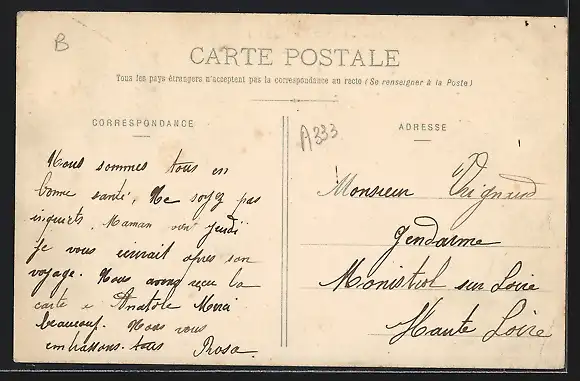 B
CARTE POSTALE
Tous les pays étrangers n'acceptent pas la correspondance au recto (Se renseigner à la Poste)
CORRESPONDANCE
Nous sommes tous en
bonne santé, Ne soyez pas
inquiets, Maman vien Jeudi
Je vous ecirait apres son
voyage. Nous avons reçu la
carte e Anatole Merci
beaucoup. Nous vous
embrassons tous Rosa.
A333
ADRESSE
Monsieur Vrignaud
Gendarme
Monistrol sur Loire
Haute Loire